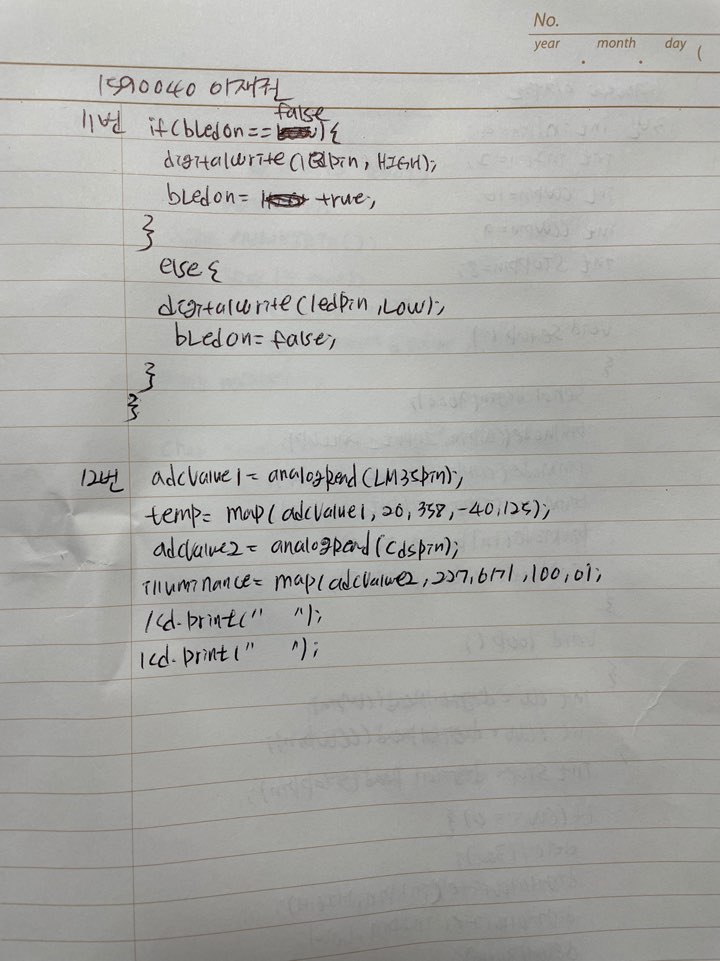 No.
year . month . day (
1590040 이재권
11번 if(bLedon==false){
digitalwrite(ledpin, HIGH);
bLedon= true;
}
else {
digitalwrite(ledpin, Low);
bLedon= false;
}
}
12번 adcValue1= analogRead(LM35pin);
temp= map( adcValue1, 20, 358, -40, 125);
adcValue2 = analogRead(Cdspin);
illuminance= map(adcValue2, 227, 671, 100, 0);
lcd.print(" ");
lcd.print(" ");